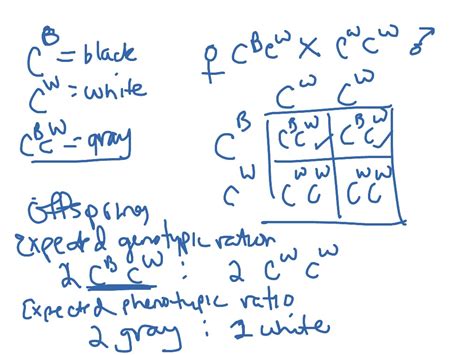 C^B = black
C^W = white
C^B C^W = gray
♀ C^B C^W × C^W C^W ♂
C^W C^W
C^B C^B C^W ✓ C^B C^W ✓
C^W C^W C^W C^W C^W
Offspring
Expected genotypic ration
2 C^B C^W : 2 C^W C^W
Expected phenotypic ratio
2 gray : 2 white